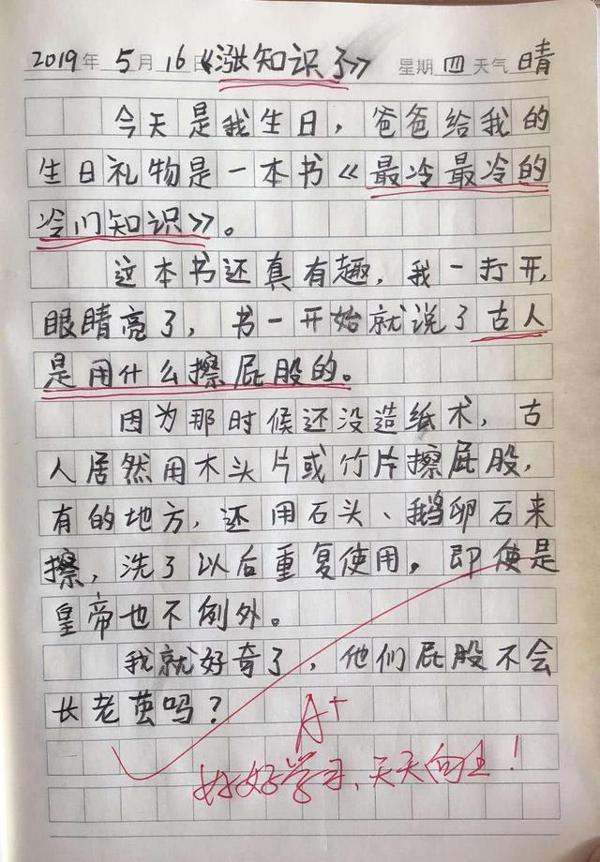 2019年5月16日《涨知识了》 星期四天气晴
今天是我生日，爸爸给我的
生日礼物是一本书《最冷最冷的
冷门知识》。
这本书还真有趣，我一打开，
眼睛亮了，书一开始就说了古人
是用什么擦屁股的。
因为那时候还没造纸术，古
人居然用木头片或竹片擦屁股，
有的地方，还用石头、鹅卵石来
擦，洗了以后重复使用。即使是
皇帝也不例外。
我就好奇了，他们屁股不会
长老茧吗？
A+
好好学习、天天向上！